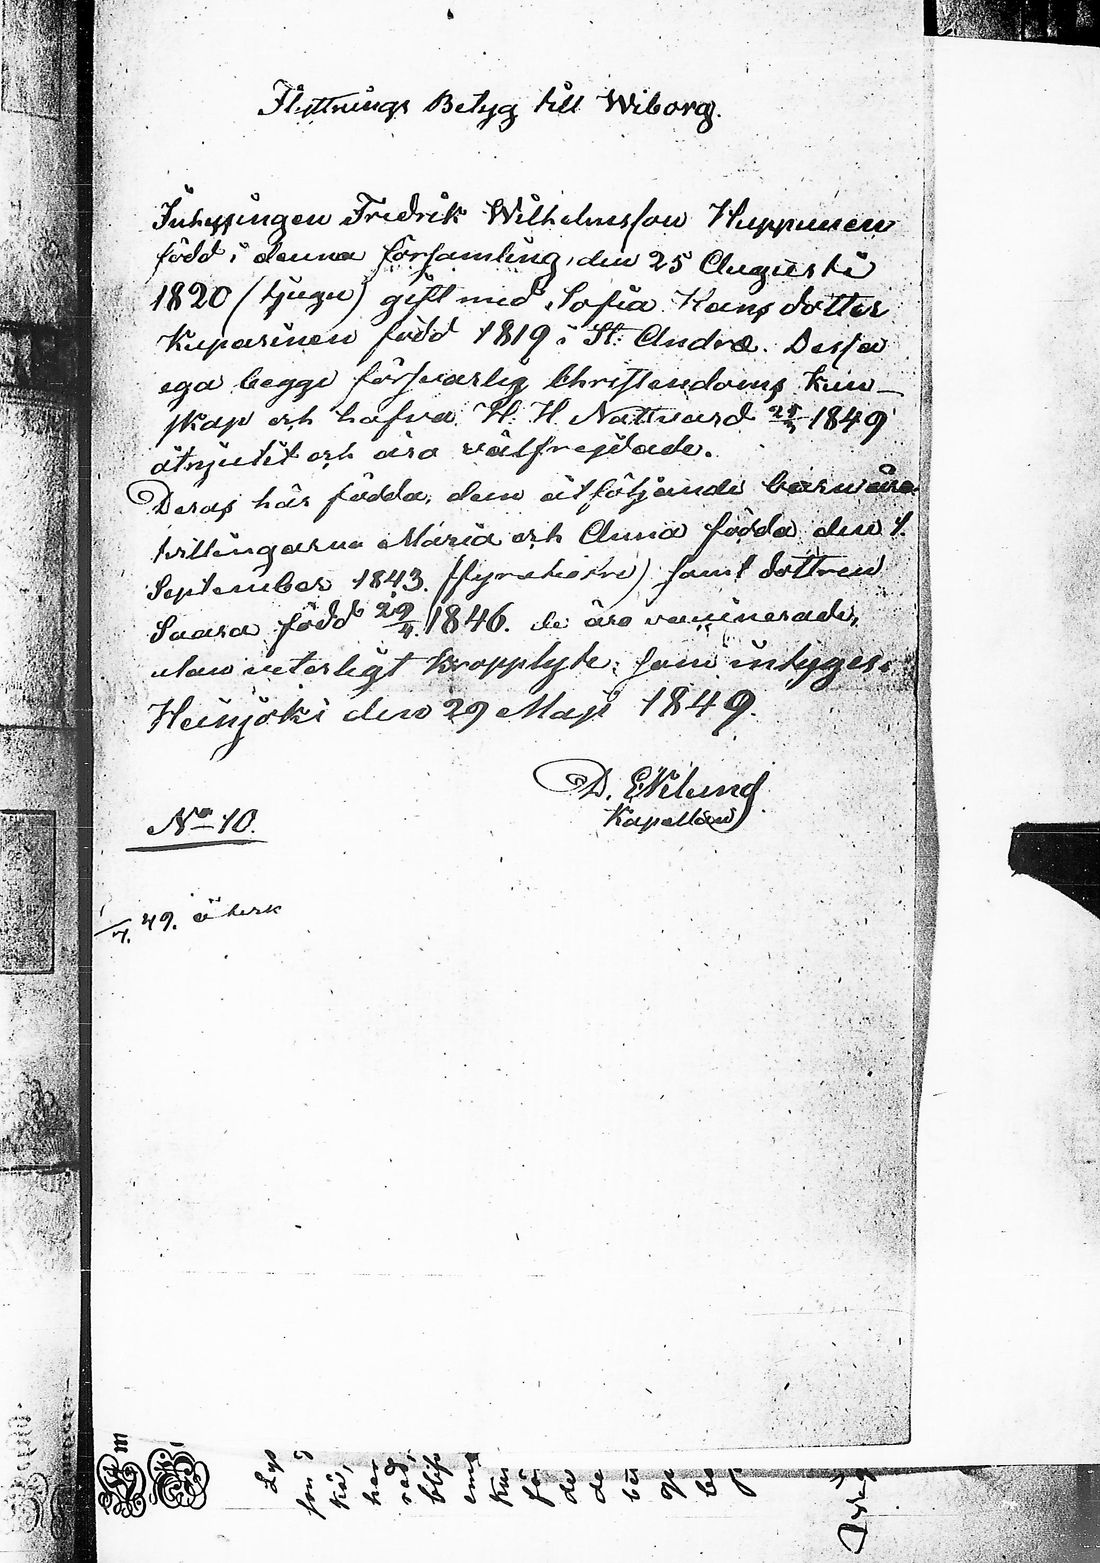 Flyttnings Betyg till Wiborg.
Inhysingen Fredrik Wilhelmsson Huppunen
född i denna församling, den 25 Augusti
1820 (tjugu) gift med Sofia Hansdotter
Kuparinen född 1819 i St. Andræ. Dessa
ega begge försvarlig Christendoms kun-
skap och hafva H. H. Nattvard 1849
åtnjutit och äro välfrejdade.
Deras här födda, dem åtföljande barn äro
tvillingarna Maria och Anna födda den 1.
September 1843. (fyratiotre) samt dottren
Saara född 29/4. 1846. de äro vaccinerade,
utan veterligt kropplyte; som intygas.
Heinjoki den 29 Maji 1849.
D. Eklund
Kapellan
No 10.
1/7. 49.